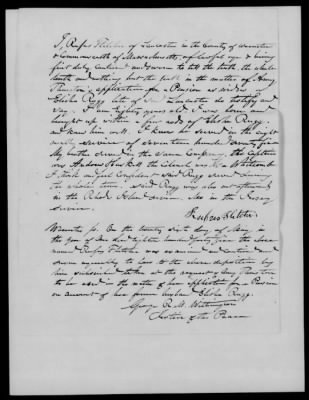 I, Rufus Fletcher of Lancaster in the County of Worcester
& Commonwealth of Massachusetts, of lawful age & being
first duly cautioned and sworn to tell the truth the whole
truth and nothing but the truth in the matter of Amy
Thurston's application for a Pension as widow of
Elisha Rugg late of said Lancaster do testify and
say, I am Eighty years old, I was born and
brought up within a few rods of Elisha Rugg
and knew him well. I know he served in the eight
months service of seventeen hundred seventy five
My brother served in the same Company. the Captain
was Andrew Haskell the Colonel was Asa Whitcomb
I think and feel confident said Rugg served during
the whole term. Said Rugg was also out afterwards
in the Rhode Island service. Also in the Jersey
service.
Rufus Fletcher
Worcester ss. On the twenty sixth day of May in
the year of Our Lord eighteen hundred forty five the above
named Rufus Fletcher was examined and cautioned and
sworn agreeably to law to the above deposition by
him subscribed taken at the request of Amy Thurston
to be used in the matter of her application for a Pension
on account of her former husband Elisha Rugg.
George R. M. Withington
Justice of the Peace